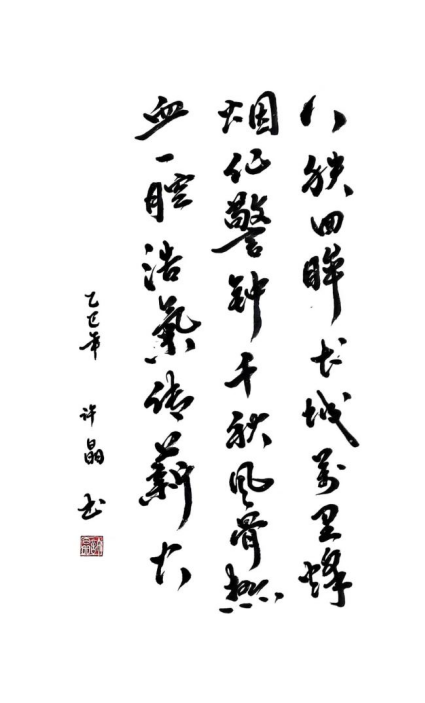 八秩回眸长城万里烽
烟化警钟千秋风骨热
血一腔浩气传薪火
乙巳年 许晶书